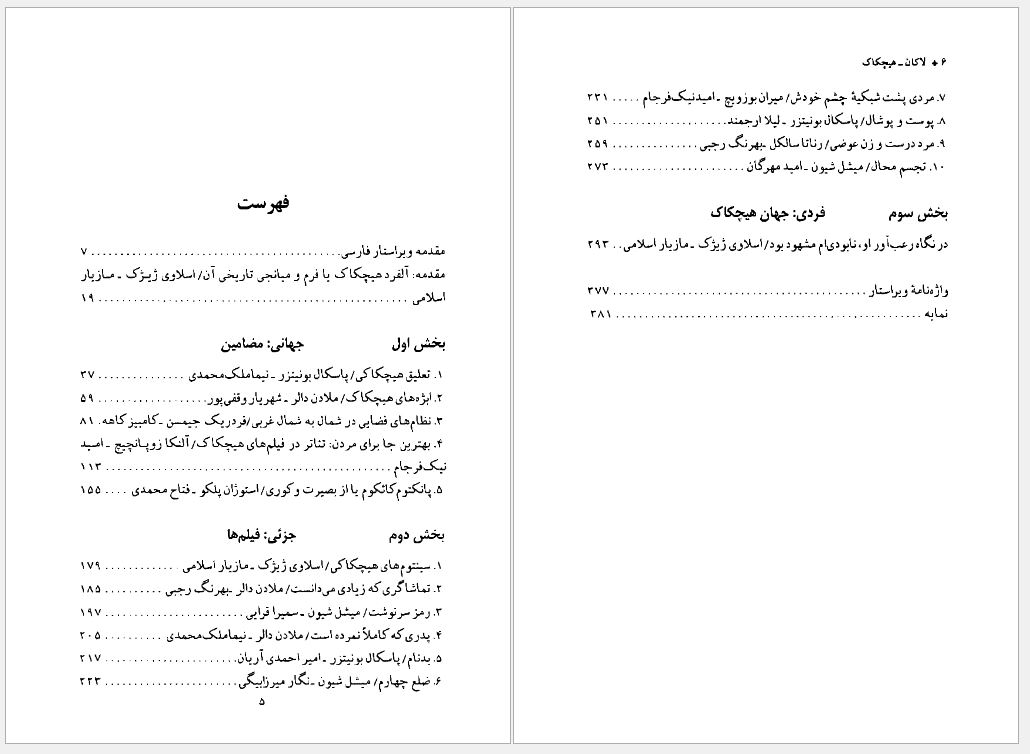 فهرست
مقدمه ویراستار فارسی.......................................... ۷
مقدمه: آلفرد هیچکاک یا فرم و میانجی تاریخی آن/ اسلاوی ژیژک ـ مازیار
اسلامی ..................................................... ۱۹
بخش اول جهانی: مضامین
۱. تعلیق هیچکاکی/ پاسکال بونیتزر ـ نیما ملک‌محمدی ............... ۳۷
۲. ابژه‌های هیچکاک/ ملادن دالر ـ شهریار وقفی‌پور................... ۵۹
۳. نظام‌های فضایی در شمال به شمال غربی/فردریک جیمسن ـ کامبیز کاهه. ۸۱
۴. بهترین جا برای مردن: تئاتر در فیلم‌های هیچکاک/ آلنکا زوپانچیچ ـ امید
نیک‌فرجام ................................................. ۱۱۳
۵. پانکتوم کائکوم یا از بصیرت و کوری/ استوژان پلکو ـ فتاح محمدی .... ۱۵۵
بخش دوم جزئی: فیلم‌ها
۱. سینتوم‌های هیچکاکی/ اسلاوی ژیژک ـ مازیار اسلامی ............ ۱۷۹
۲. تماشاگری که زیادی می‌دانست/ ملادن دالر ـ بهرنگ رجبی .......... ۱۸۵
۳. رمز سرنوشت/ میشل شیون ـ سمیرا قرایی........................ ۱۹۷
۴. پدری که کاملاً نمرده است/ ملادن دالر ـ نیما ملک‌محمدی .......... ۲۰۵
۵. بدنام/ پاسکال بونیتزر ـ امیر احمدی آریان....................... ۲۱۷
۶. ضلع چهارم/ میشل شیون ـ نگار میرزابیگی....................... ۲۲۳
۵
۶ + لاکان ـ هیچکاک
۷. مردی پشت شبکیهٔ چشم خودش/ میران بوزوویچ ـ امید نیک‌فرجام ..... ۲۳۱
۸. پوست و پوشال/ پاسکال بونیتزر ـ لیلا ارجمند.................... ۲۵۱
۹. مرد درست و زن عوضی/ رناتا سالکل ـ بهرنگ رجبی ............... ۲۵۹
۱۰. تجسم محال/ میشل شیون ـ امید مهرگان ....................... ۲۷۳
بخش سوم فردی: جهان هیچکاک
در نگاه رعب‌آور او، نابودی‌ام مشهود بود/ اسلاوی ژیژک ـ مازیار اسلامی.. ۲۹۳
واژه‌نامهٔ ویراستار ............................................ ۳۷۷
نمایه ..................................................... ۳۸۱